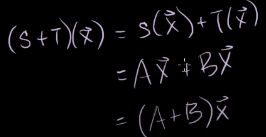 (S+T)(x⃗) = S(x⃗) + T(x⃗)
= Ax⃗ + Bx⃗
= (A+B)x⃗